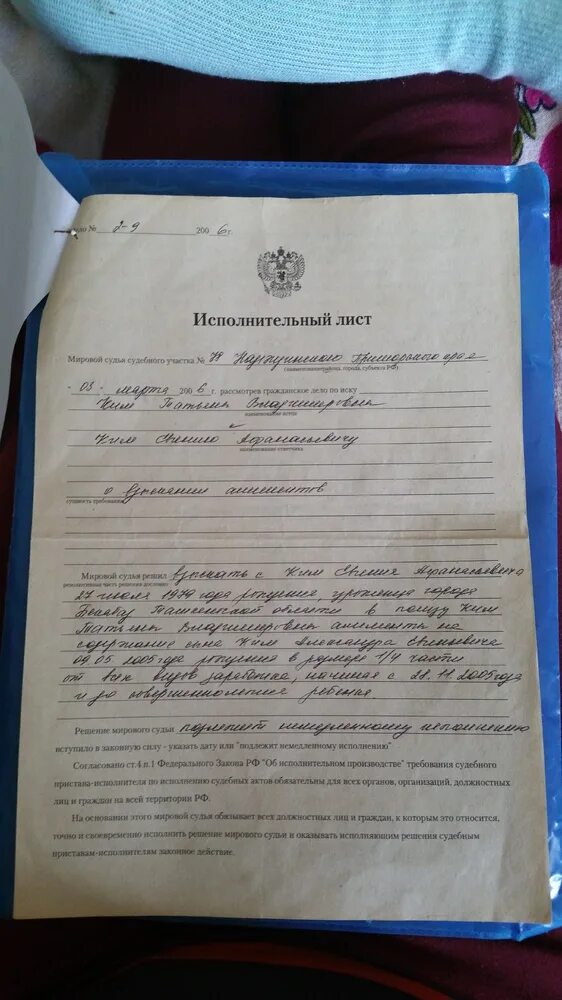 дело № 2-9 2006 г.
Исполнительный лист
Мировой судья судебного участка № 79 Приморского края
(наименование района, города, субъекта РФ)
- 03 - марта 2006 г. рассмотрев гражданское дело по иску
Ким Татьяны Владимировны
наименование истца
к
Ким Евгению Афанасьевичу
наименование ответчика
о взыскании алиментов
сущность требования
Мировой судья решил взыскать с Ким Евгения Афанасьевича
резолютивная часть решения дословно
27 июля 1979 года рождения, уроженца города
Бекабад Ташкентской области в пользу Ким
Татьяны Владимировны алименты на
содержание сына Ким Александра Евгеньевича
09.05.2005 года рождения в размере 1/4 части
от всех видов заработка, начиная с 28.11.2005 года
и до совершеннолетия ребенка
Решение мирового судьи подлежит немедленному исполнению
вступило в законную силу - указать дату или "подлежит немедленному исполнению"
Согласовано ст.4 п.1 Федерального Закона РФ "Об исполнительном производстве" требования судебного
пристава-исполнителя по исполнению судебных актов обязательны для всех органов, организаций, должностных
лиц и граждан на всей территории РФ.
На основании этого мировой судья обязывает всех должностных лиц и граждан, к которым это относится,
точно и своевременно исполнить решение мирового судьи и оказывать исполняющим решения судебным
приставам-исполнителям законное действие.